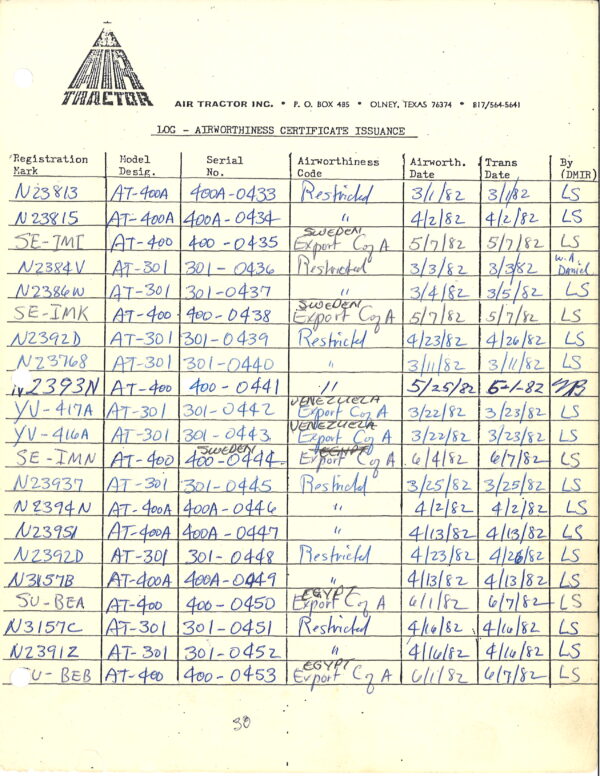 AIR TRACTOR
AIR TRACTOR INC. • P. O. BOX 485 • OLNEY, TEXAS 76374 • 817/564-5641
LOG - AIRWORTHINESS CERTIFICATE ISSUANCE
Registration Mark Model Desig. Serial No. Airworthiness Code Airworth. Date Trans Date By (DMIR)
N23813 AT-400A 400A-0433 Restricted 3/1/82 3/1/82 LS
N23815 AT-400A 400A-0434 " 4/2/82 4/2/82 LS
SE-IMI AT-400 400-0435 SWEDEN Export C of A 5/7/82 5/7/82 LS
N2384V AT-301 301-0436 Restricted 3/3/82 3/3/82 W.A. Daniel
N2386W AT-301 301-0437 " 3/4/82 3/5/82 LS
SE-IMK AT-400 400-0438 SWEDEN Export C of A 5/7/82 5/7/82 LS
N2392D AT-301 301-0439 Restricted 4/23/82 4/26/82 LS
N23768 AT-301 301-0440 " 3/11/82 3/11/82 LS
2393N AT-400 400-0441 " 5/25/82 6-1-82
YV-417A AT-301 301-0442 VENEZUELA Export C of A 3/22/82 3/23/82 LS
YV-416A AT-301 301-0443 VENEZUELA Export C of A 3/22/82 3/23/82 LS
SE-IMN AT-400 400-0444 SWEDEN EGYPT Export C of A 6/4/82 6/7/82 LS
N23937 AT-301 301-0445 Restricted 3/25/82 3/25/82 LS
N2394N AT-400A 400A-0446 " 4/2/82 4/2/82 LS
N23951 AT-400A 400A-0447 " 4/13/82 4/13/82 LS
N2392D AT-301 301-0448 Restricted 4/23/82 4/26/82 LS
N3157B AT-400A 400A-0449 " 4/13/82 4/13/82 LS
SU-BEA AT-400 400-0450 EGYPT Export C of A 6/1/82 6/7/82 LS
N3157C AT-301 301-0451 Restricted 4/16/82 4/16/82 LS
N2391Z AT-301 301-0452 " 4/16/82 4/16/82 LS
SU-BEB AT-400 400-0453 EGYPT Export C of A 6/1/82 6/7/82 LS
38